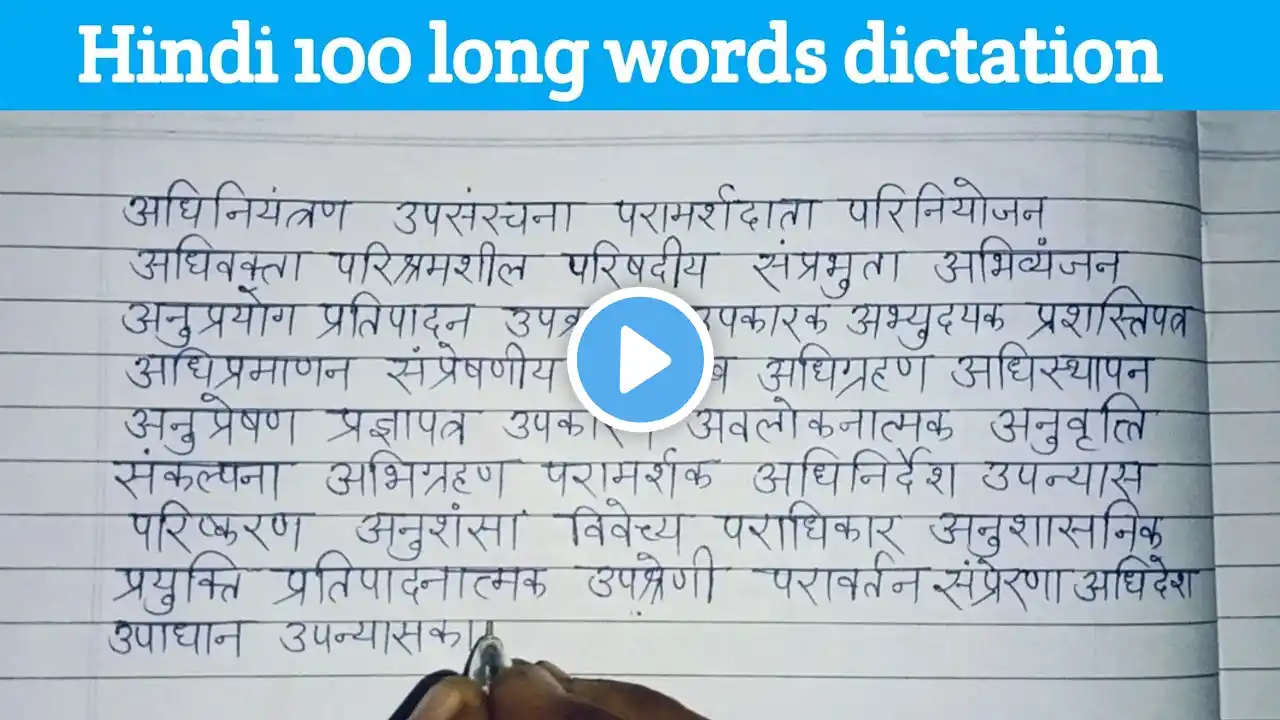 Hindi 100 long words dictation
अधिनियंत्रण उपसंरचना परामर्शदाता परिनियोजन
अधिवक्ता परिश्रमशील परिषदीय संप्रभुता अभिव्यंजन
अनुप्रयोग प्रतिपादन उपकारक अभ्युदयक प्रशस्तिपत्र
अधिप्रमाणन संप्रेषणीय अधिग्रहण अधिस्थापन
अनुप्रेषण प्रज्ञापत्र अवलोकनात्मक अनुवृत्ति
संकल्पना अभिग्रहण परामर्शक अधिनिर्देश उपन्यास
परिष्करण अनुशंसा विवेच्य पराधिकार अनुशासनिक
प्रयुक्ति प्रतिपादनात्मक उपश्रेणी परावर्तन संप्रेरणा अधिदेश
उपाधान उपन्यासका